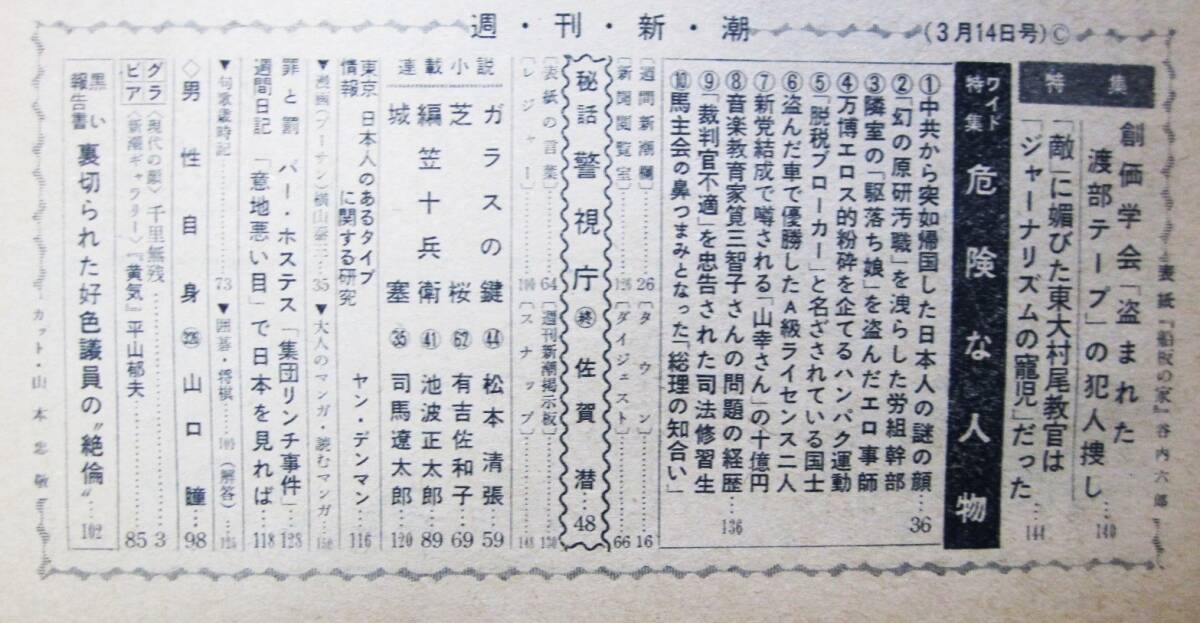 週・刊・新・潮
(3月14日号)©
表紙『船板の家』谷内六郎
特集
創価学会「盗まれた
渡部テープ」の犯人捜し 140
「敵」に媚びた東大村尾教官は
「ジャーナリズムの寵児」だった 144
ワイド特集 危険な人物
①中共から突如帰国した日本人の謎の顔…36
②「幻の原研汚職」を洩らした労組幹部
③隣室の「駆落ち娘」を盗んだエロ事師
④万博エロス的粉砕を企てるハンパク運動
⑤「脱税ブローカー」と名ざされている国士
⑥盗んだ車で優勝したA級ライセンス二人
⑦新党結成で噂される「山幸さん」の十億円
⑧音楽教育家筧三智子さんの問題の経歴…136
⑨「裁判官不適」を忠告された司法修習生
⑩馬主会の鼻つまみとなった「総理の知合い」
〔週間新潮欄〕26
〔タウン〕16
〔新聞閲覧室〕126
〔ダイジェスト〕66
秘話警視庁 ㊡ 佐賀潜…48
〔表紙の言葉〕64
〔週刊新潮掲示板〕130
〔レジャー〕100
〔スナップ〕148
連載小説
ガラスの鍵 ㊹ 松本清張 59
芝桜 62 有吉佐和子 69
編笠十兵衛 ㊶ 池波正太郎 89
城塞 ㉟ 司馬遼太郎 120
東京情報 日本人のあるタイプに関する研究 ヤン・デンマン…116
▼漫画(プーサン)横山泰三…35
▼大人のマンガ・読むマンガ…
罪と罰 バー・ホステス「集団リンチ事件」…128
週間日記 「意地悪い目」で日本を見れば…118
▼句歌歳時記…73
▼囲碁・将棋…109(解答)…125
◇男性自身 326 山口瞳…98
グラビア
〈現代の顔〉千里無残…3
〈新潮ギャラリー〉『黄気』平山郁夫…85
黒い報告書 裏切られた好色議員の〝絶倫〟…102
カット・山本忠敬